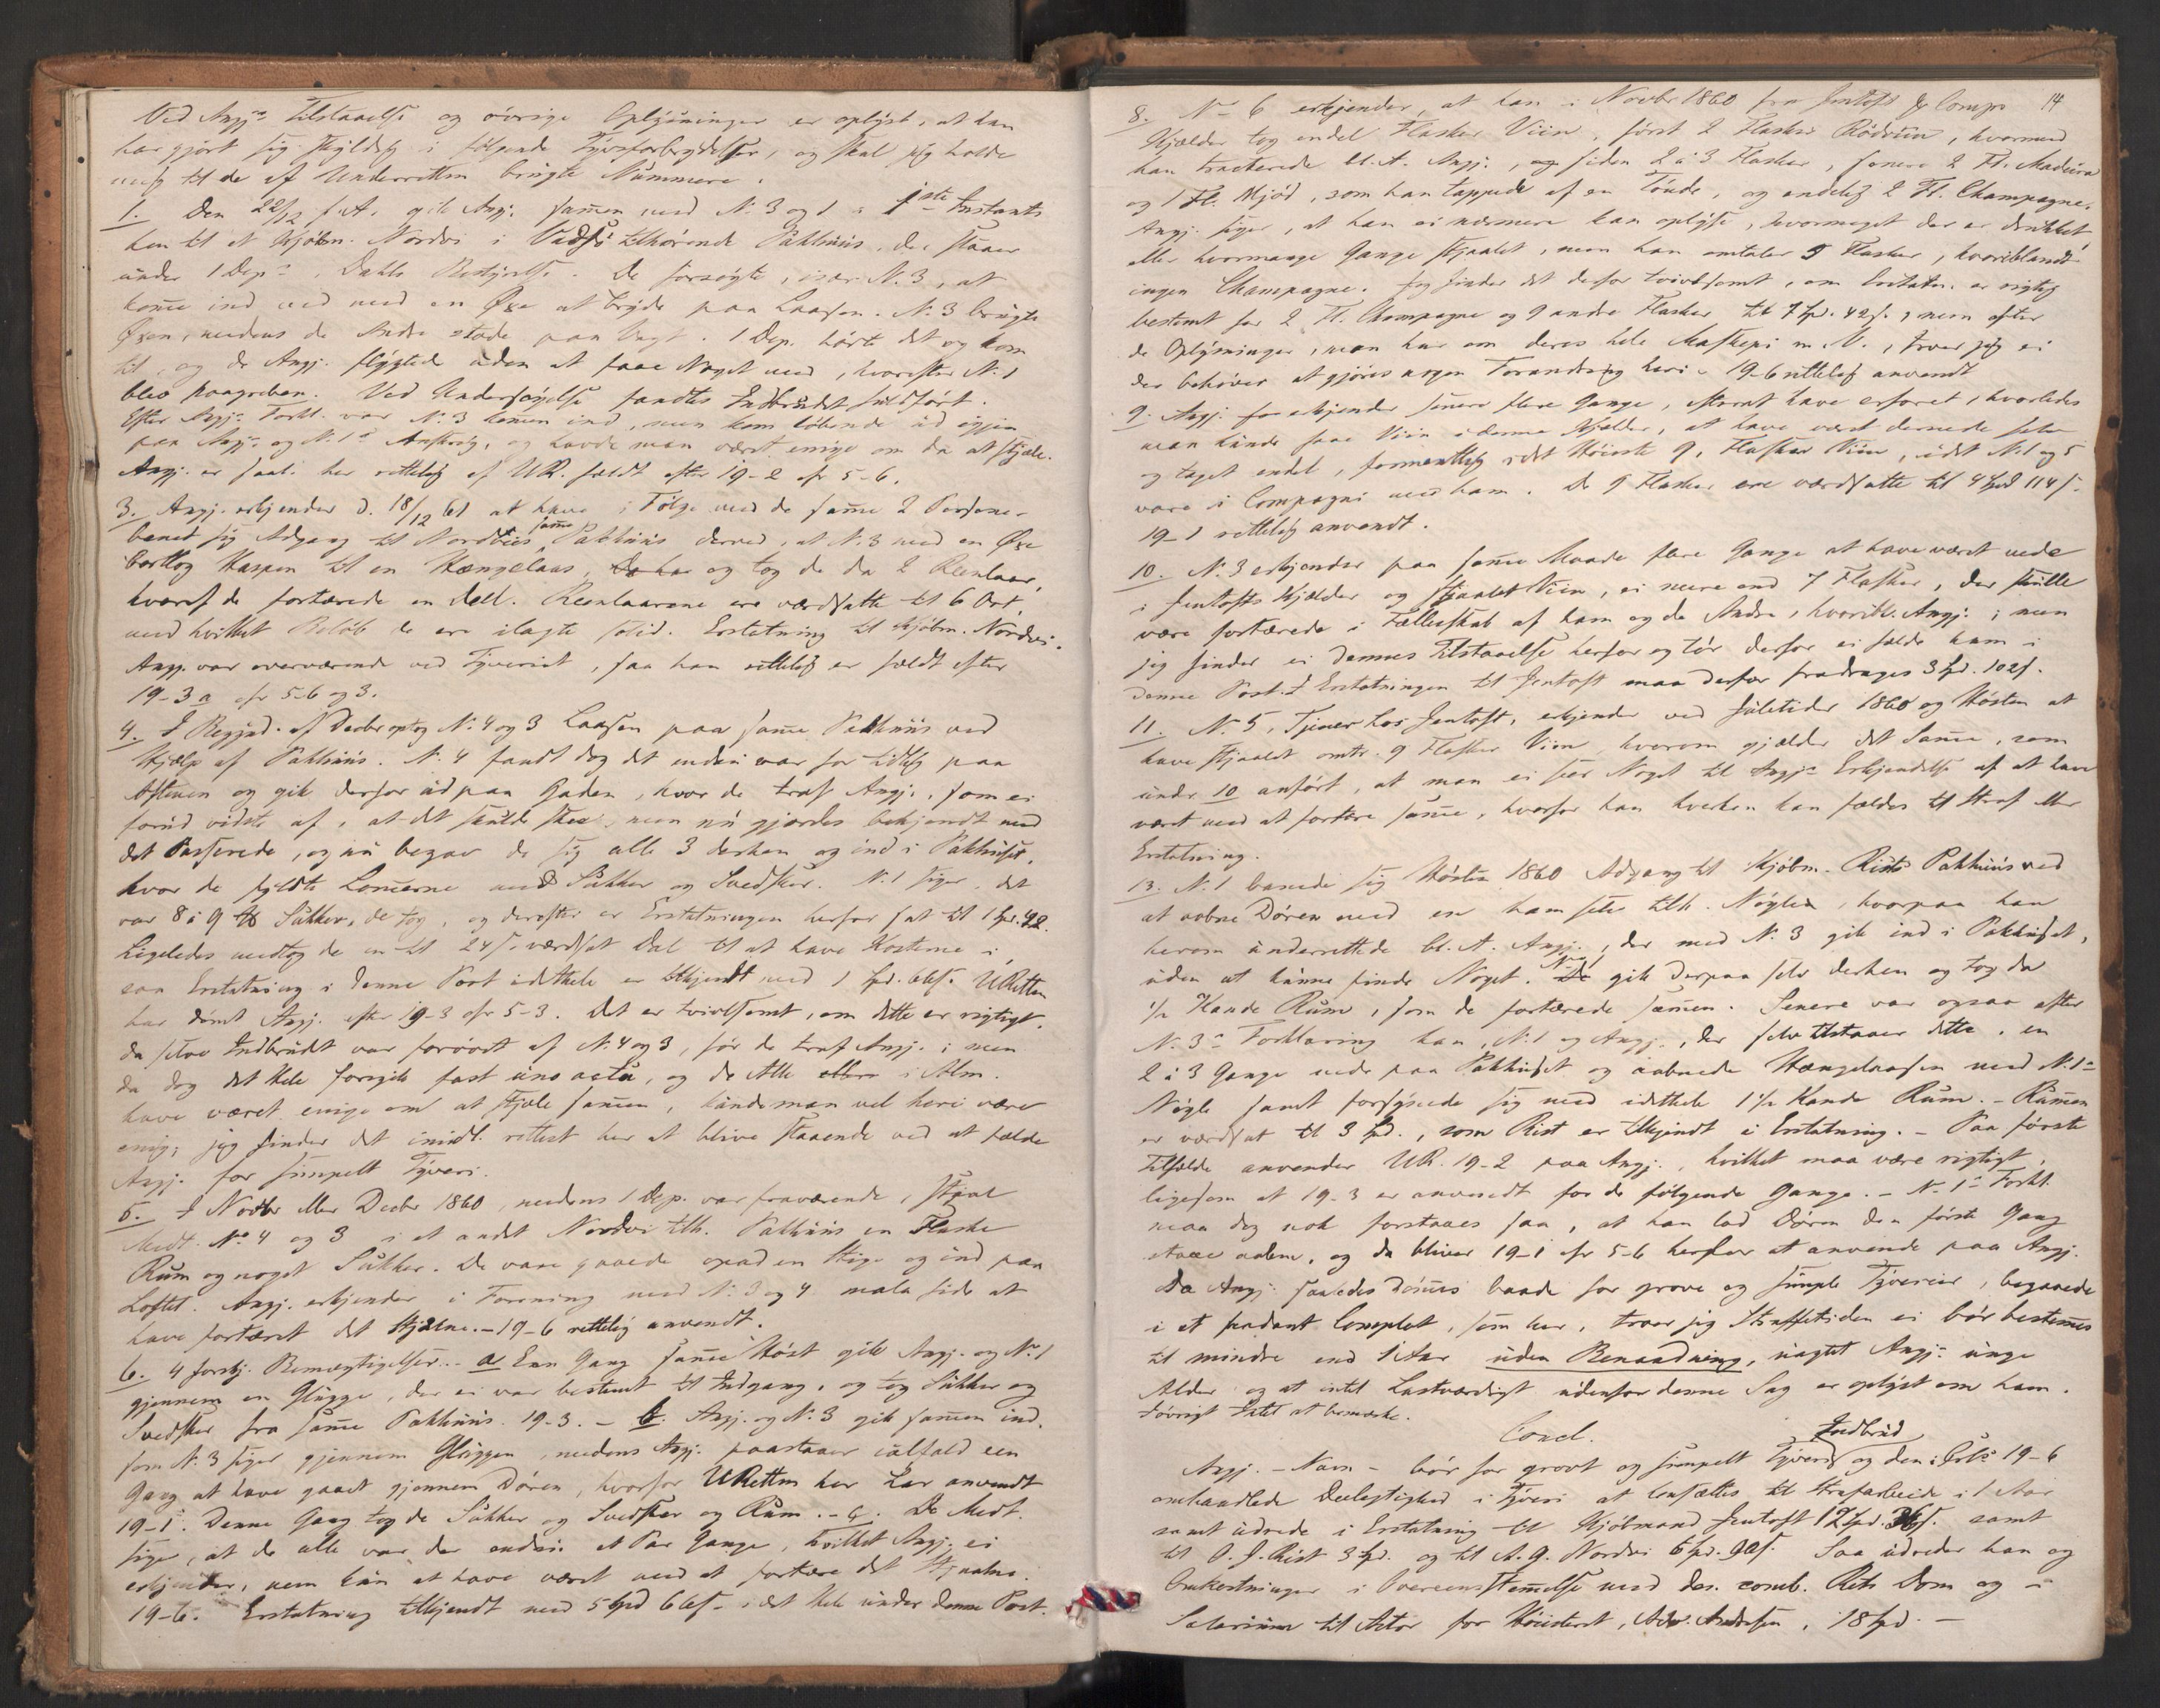 Ved Angj.s Tilstaaelse og øvrige Oplysninger er oplyst, at han
har gjort sig skyldig i følgende Tyvsforbrydelser, og skal jeg holde
mig til de af Underretten brugte Nummere.
1. Den 22/12 f. A. gik Angj. sammen med N. 3 og 1 i 1ste Instants
hen til et Kjøbm. Nordvi i Vadsø tilhørende Pakhuus, der staaer
under 1 Dep.s, Dahls Bestyrelse. De forsøgte, især N. 3, at
komme ind ved med en Øxe at bryde paa Laasen. N. 3 brugte
Øxen, medens de Andre stode paa Vagt. 1 Dep. hørte det og kom
til, og de Angj. flygtede uden at faae Noget med, hvorefter N. 1
blev paagreben. Ved Undersøgelse fandtes Indbrudet fuldført.
Efter Angj.s Forkl. var N. 3 kommen ind, men kom løbende ud igjen
paa Angj.s og N. 1s Anskrig, og havde man været enige om da at stjæle.
Angj. er saal. her rettelig af UR. fældt efter 19-2 cfr 5-6.
3. Angj. erkjender d. 18/12 61 at have i Følge med de samme 2 Personer
banet sig Adgang til Nordvies samme Pakhuus derved, at N. 3 med en Øxe
borttog Haspen til en Hængelaas, og tog de da 2 Reenlaar,
hvoraf de fortærede en Deel. Reenlaarene ere værdsatte til 6 Ort,
med hvilket Beløb de ere ilagte solid. Erstatning til Kjøbm. Nordvi.
Angj. var overværende ved Tyveriet, saa han rettelig er fældt efter
19-3 a cfr 5-6 og 3.
4. I Begynd. af Decbr optog N. 4 og 3 Laasen paa samme Pakhuus ved
Hjælp af Pakhuus. N. 4 fandt dog det endnu var for tidlig paa
Aftenen og gik derfor ud paa Gaden, hvor de traf Angj., som ei
forud vidste af, at det skulde skee, men nu gjordes bekjendt med
det Passerede, og nu begav de sig alle 3 derhen og ind i Pakhuset,
hvor de fyldte Lommerne med Sukker og Svedsker. N. 1 siger, det
var 8 à 9 ℔ Sukker, de tog, og derefter er Erstatningen herfor sat til 1 Spd. 42.
Ligeledes medtog de en til 24 s. værdsat Dal til at have Kosterne i,
saa Erstatning i denne Post idethele er tilkjendt med 1 Spd. 66 s. URetten
har dømt Angj. efter 19-3 cfr 5-3. Det er tvivlsomt, om dette er rigtigt,
da selve Indbrudet var forøvet af N. 4 og 3, før de traf Angj.; men
da dog det Hele foregik fast uno actu, og de Alle ellers i Alm.
have været enige om at stjæle sammen, kunde man vel heri være
enig; jeg finder det imidl. rettest her at blive staaende ved at fælde
Angj. for simpelt Tyveri.
5. I Novbr eller Decbr 1860, medens 1 Dep. var fraværende, stjal
Medt. No 4 og 3 i et andet Nordvi tilh. Pakhuus en Flaske
Rum og noget Sukker. De vare gaaede opad en Stige og ind paa
Loftet. Angj. erkjender i Forening med N. 3 og 4 mala fide at
have fortæret det Stjaalne. - 19-6 rettelig anvendt.
6. 4 forskj. Bemægtigelser. - a Enn Gang samme Høst gik Angj. og N. 1
gjennem en Glugge, der ei var bestemt til Indgang, og tog Sukker og
Svedsker fra samme Pakhuus. 19-3. - b. Angj. og N. 3 gik sammen ind,
som N. 3 siger gjennem Gluggen, medens Angj. paastaaer ialfald een
Gang at have gaaet gjennem Døren, hvorfor URetten her har anvendt
19-1. Denne Gang tog de Sukker og Svedsker og Rum. - c. De Medt.
siger, at de alle var der endnu et Par Gange, hvilket Angj. ei
erkjender, men kun at have været med at fortære det Stjaalne.
19-6. Erstatning tilkjendt med 5 Spd 66 s. i det Hele under denne Post.
14
8. N. 6 erkjender, at han i Novbr 1860 fra Jentoft & Comps
Kjælder tog endel Flasker Viin, først 2 Flasker Rødviin, hvormed
han tracterede bl. A. Angj., og siden 2 à 3 Flasker, senere 2 Fl. Madeira
og 1 Fl. Mjød, som han tappede af en Tønde, og endelig 2 Fl. Champagne.
Angj. siger, at han ei nærmere kan oplyse, hvormeget der er drukket,
eller hvormange Gange stjaalet, men han omtaler 9 Flasker, hvoriblandt
ingen Champagne. Jeg finder det derfor tvivlsomt, om Erstatn. er rigtig
bestemt for 2 Fl. Champagne og 9 andre Flasker til 7 Spd. 42 s., men efter
de Oplysninger, man har om deres hele Maskepi m. V., troer jeg ei
der behøver at gjøres nogen Forandring heri - 19-6 rettelig anvendt
9. Angj. erkjender senere flere Gange, efterat have erfaret, hvorledes
man kunde faae Viin i denne Kjælder, at have været dernede selv
og taget endel, formentlig i det Høieste 9, Flasker Viin, idet N. 1 og 5
vare i Compagni med ham. De 9 Flasker ere værdsatte til 4 Spd 114 s.
19-1 rettelig anvendt.
10. N. 3 erkjender paa samme Maade flere Gange at have været nede
i Jentofts Kjælder og stjaalet Viin, ei mere end 7 Flasker, der skulle
være fortærede i Fællesskab af ham og de Andre, hvoribl. Angj.; men
jeg finder ei Dennes Tilstaaelse herfor og tør derfor ei fælde ham i
denne Post. I Erstatningen til Jentoft maa derfor fradrages 3 Spd. 102 s.
11. N. 5, Tjener hos Jentoft, erkjender ved Juletider 1860 og Høsten at
have stjaalet omtr. 9 Flasker Viin, hvorom gjælder det Samme, som
under 10 anført, at man ei seer Noget til Angj.s Erkjendelse af at have
været med at fortære samme, hvorfor han hverken kan fældes til Straf eller
Erstatning.
13. N. 1 banede sig Høsten 1860 Adgang til Kjøbm. Rists Pakhuus ved
at aabne Døren med en ham selv tilh. Nøgle, hvorpaa han
herom underrettede bl. A. Angj., der med N. 3 gik ind i Pakhuset,
uden at kunne finde Noget. N. 1 gik derpaa selv derhen og tog da
1/2 Kande Rum, som de fortærede sammen. Senere var ogsaa efter
N. 3s Forklaring han, N. 1 og Angj., der selv tilstaaer dette, en
2 à 3 Gange nede paa Pakhuset og aabnede Hængelaasen med N. 1s
Nøgle samt forsynede sig med idethele 1 1/2 Kande Rum. - Rummen
er værdsat til 3 Spd., som Rist er tilkjendt i Erstatning. - Paa første
Tilfælde anvender UR. 19-2 paa Angj., hvilket maa være rigtigt,
ligesom at 19-3 er anvendt for de følgende Gange. - N. 1s Forkl.
maa dog nok forstaaes saa, at han lod Døren den første Gang
staae aaben, og da bliver 19-1 cfr 5-6 herfor at anvende paa Angj.
Da Angj. saaledes dømmes baade for grove og simple Tyverier, begaaede
i et saadant Complot, som her, troer jeg Straffetiden ei bør bestemmes
til mindre end 1 Aar uden Benaadning, uagtet Angj.s unge
Alder og at intet Lastværdigt udenfor denne Sag er oplyst om ham.
Iøvrigt Intet at bemærke.
Concl.
Indbrud
Angj. - Navn - bør for grovt og simpelt Tyveri og den i Crl. 19-6
omhandlede Deelagtighed i Tyveri at hensættes til Strafarbeide i 1 Aar
samt udrede i Erstatning til Kjøbmand Jentoft 12 Spd. 36 s. samt
til O. J. Rist 3 Spd. og til A. G. Nordvi 6 Spd. 90 s. Saa udreder han og
Omkostninger i Overeensstemmelse med den comb. Rets Dom og i
Salarium til Actor for Høiesteret, Adv. Andresen, 18 Spd. -